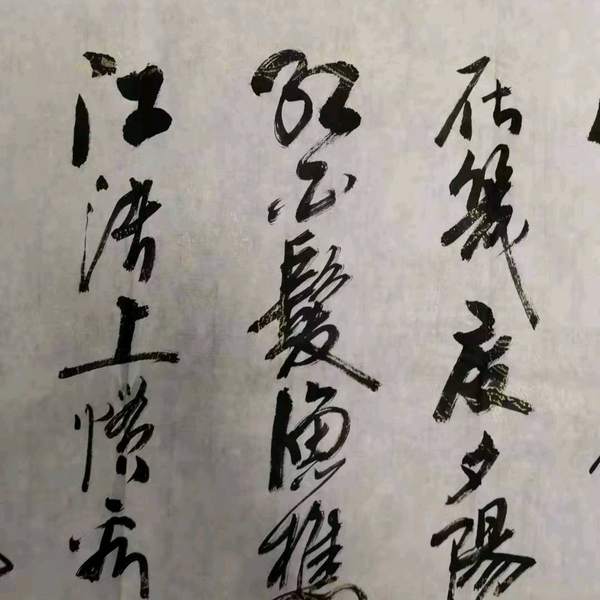 在幾度夕陽
紅白髮漁樵
江渚上慣看